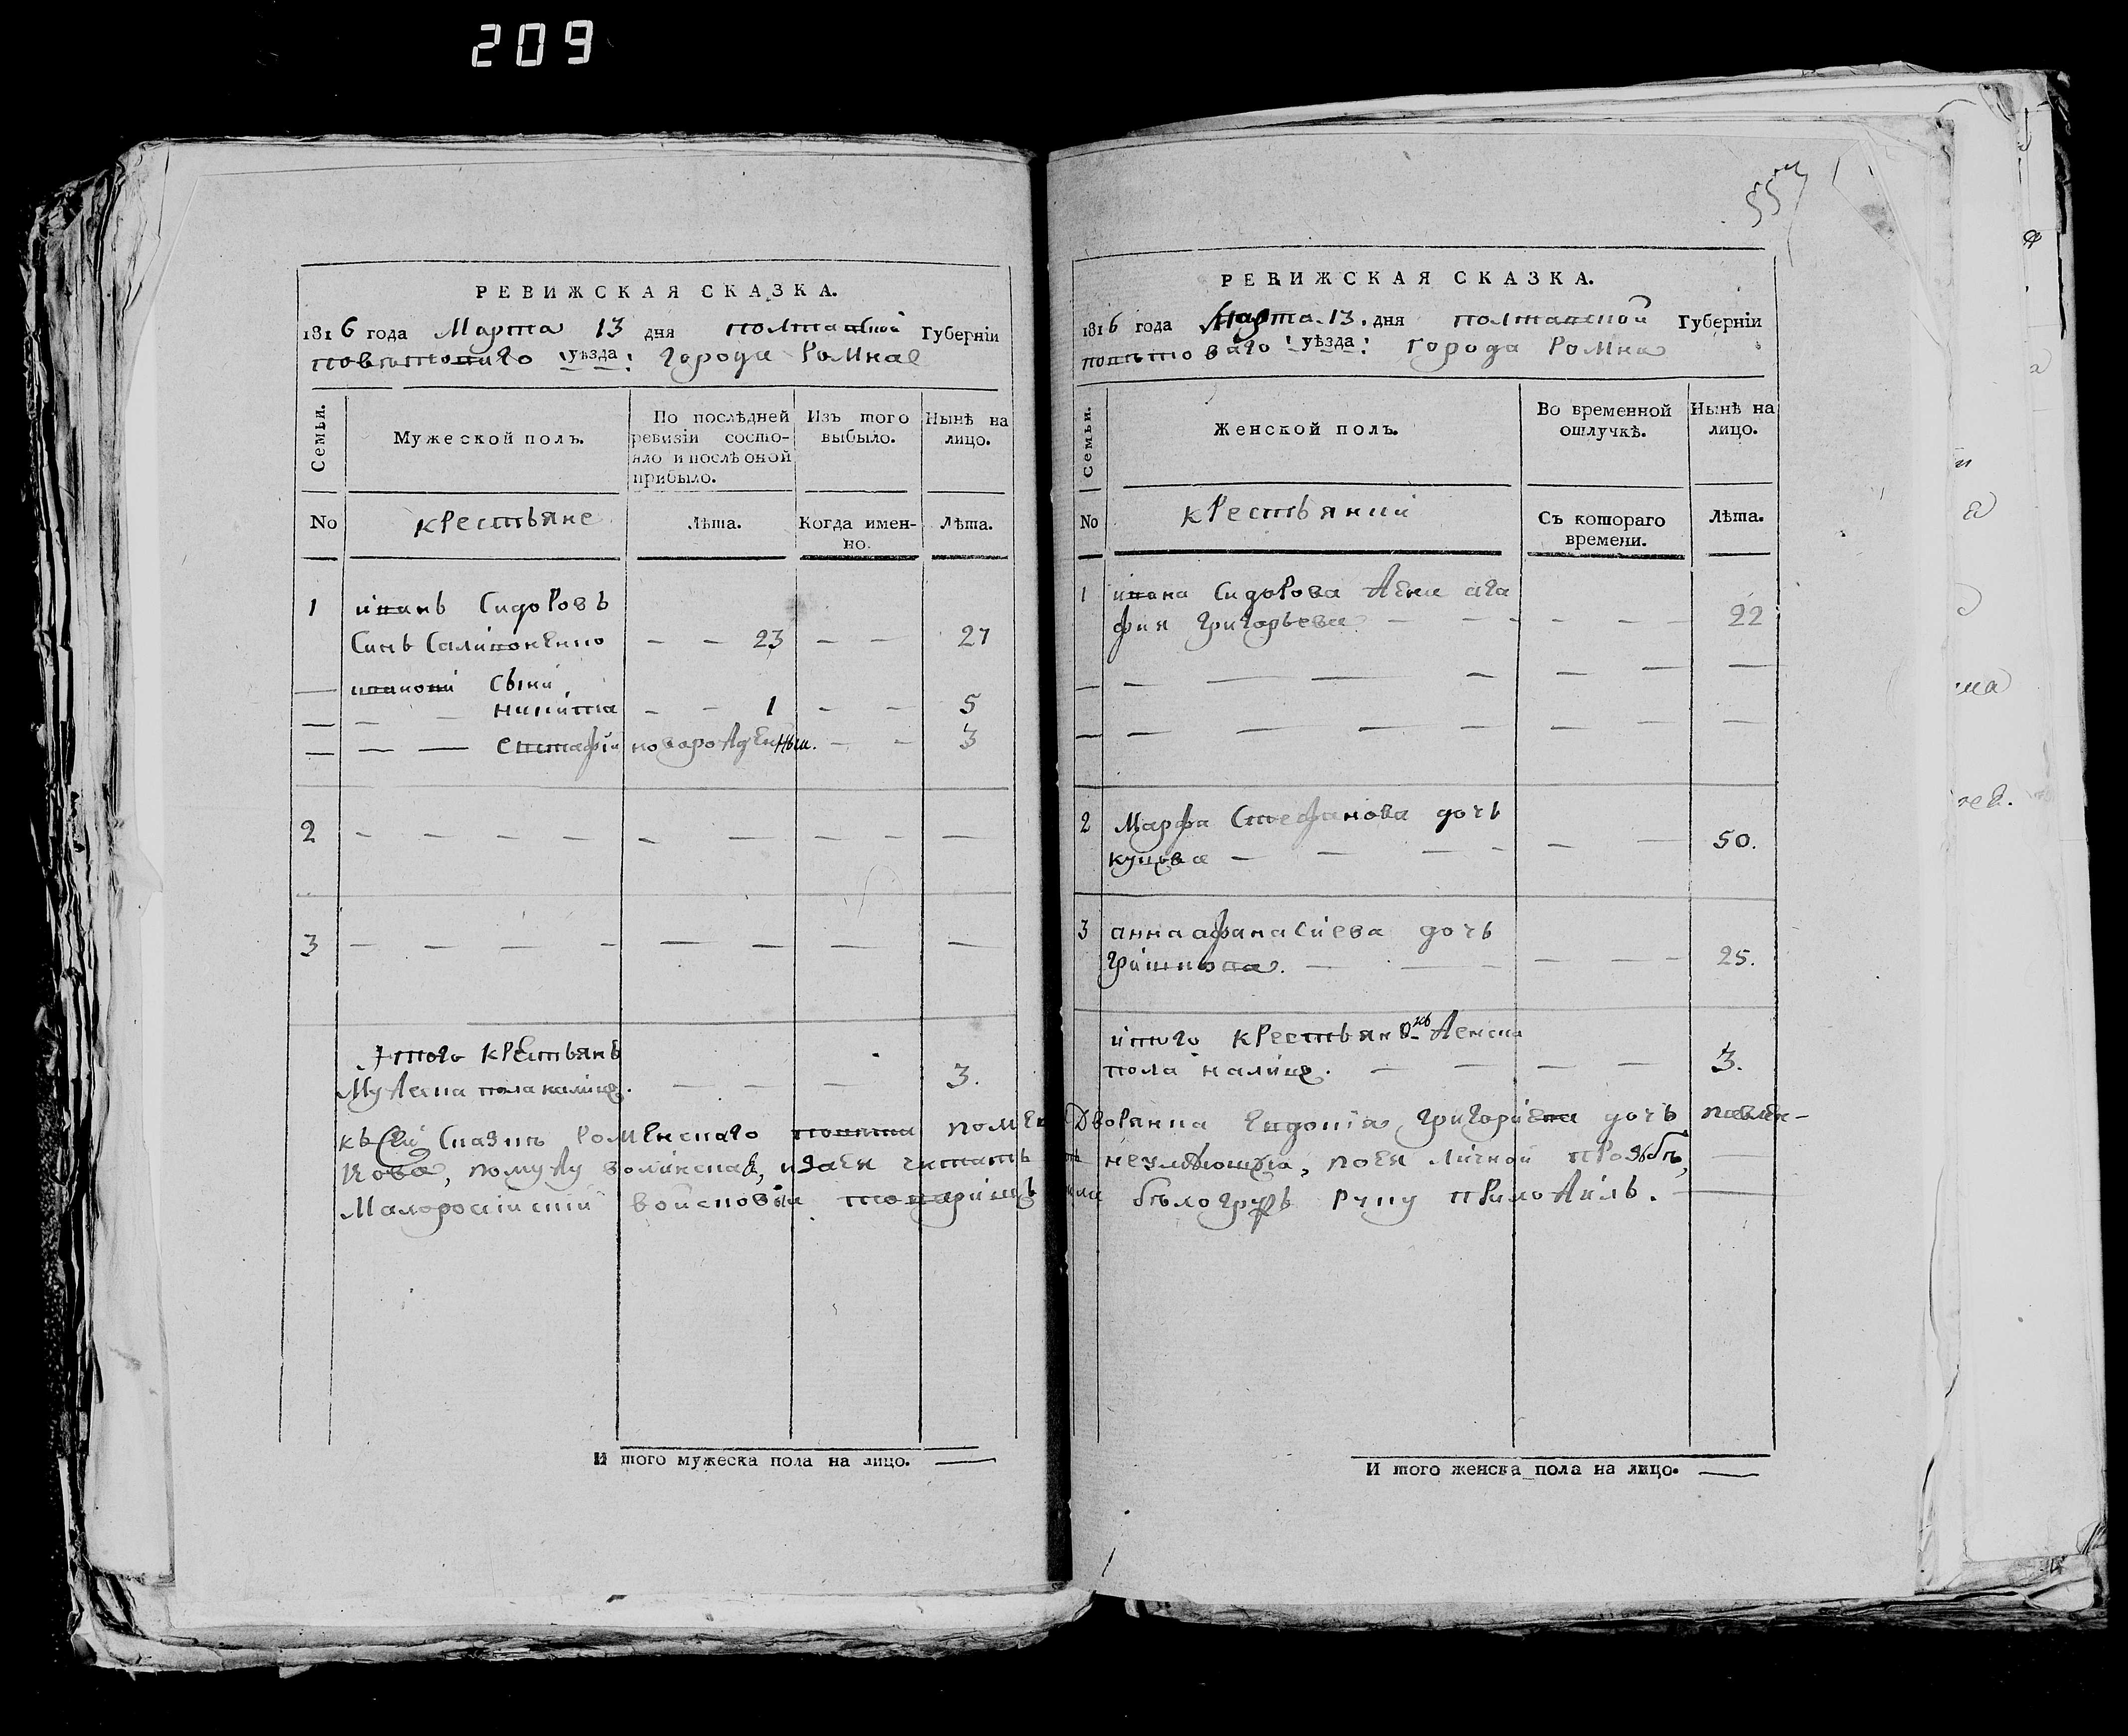 209
557
РЕВИЖСКАЯ СКАЗКА.
1816 года Марта 13 дня полтавской Губерніи
поветоваго уѣзда: города Ромна
Семьи.
Мужеской полъ.
По послѣдней ревизіи состояло и послѣ оной прибыло.
Изъ того выбыло.
Нынѣ на лицо.
No
крестьяне
Лѣта.
Когда именно.
Лѣта.
1 иванъ Сидоровъ
Синъ Салигоненко — — 23 — — 27
ивановы сыни
никита — — 1 — — 5
— — — евстафiи новорожденныи. — — 3
2 — — — — — — — — — —
3 — — — — — — — — —
Итого крестьянъ
Мужеска пола налицо. — — — 3.
къ Сей Сказкѣ Роменскаго повета помещ
кова, помужу волинская, изаея читать
Малоросiйскiй войсковы товарищъ
И того мужеска пола на лицо. —
РЕВИЖСКАЯ СКАЗКА.
1816 года Марта 13. дня полтавской Губерніи
поветоваго уѣзда: города Ромна
Семьи.
Женской полъ.
Во временной отлучкѣ.
Нынѣ на лицо.
No
крестьянки
Съ котораго времени.
Лѣта.
1 ивана Сидорова Жена ага
фия григорьева — — — — — — 22
— — — — — — —
— — — — — — — —
2 Марфа Стефанова дочъ
куцова — — — — — — 50.
3 анна афанасиева дочъ
гришкова. — — — — — 25.
итого крестьянокъ Женска
пола налицо. — — — — 3.
Дворянка Евдокiя григориева дочъ павлен-
неумѣющая, поея личной прозбѣ, —
белогрудъ руку приложилъ. —
И того женска пола на лицо. —